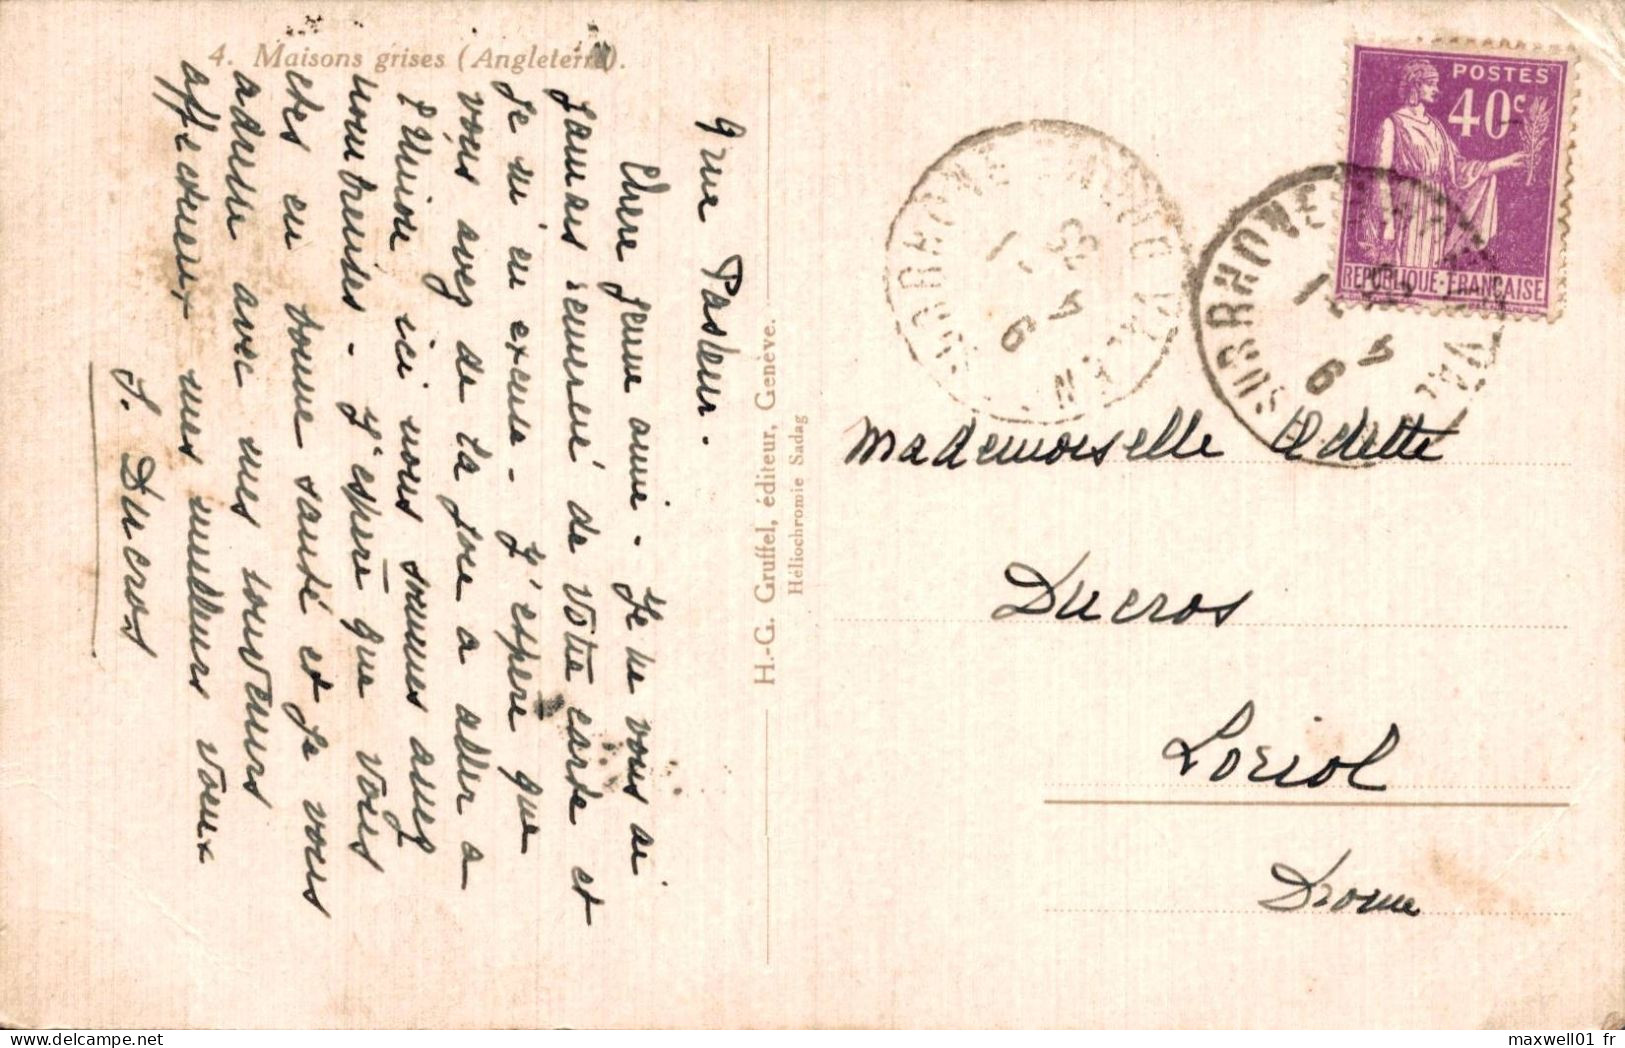 4. Maisons grises (Angleterre).
9 rue Pasteur.
Chere jeune amie - Je ne vous ai
jamais remercié de votre carte et
je m'en excuse - J'espère que
vous avez de la joie a aller a
l'Union ici nous sommes assez
nombreuses - J'espère que vous
etes en bonne santé et je vous
adresse avec mes souvenirs
affectueux mes meilleurs vœux
S. Ducros
H.-G. Gruffel, éditeur, Genève.
Héliochromie Sadag
POSTES
40c
REPUBLIQUE-FRANÇAISE
Mademoiselle Odette
Ducros
Loriol
Drome
maxwell01 fr